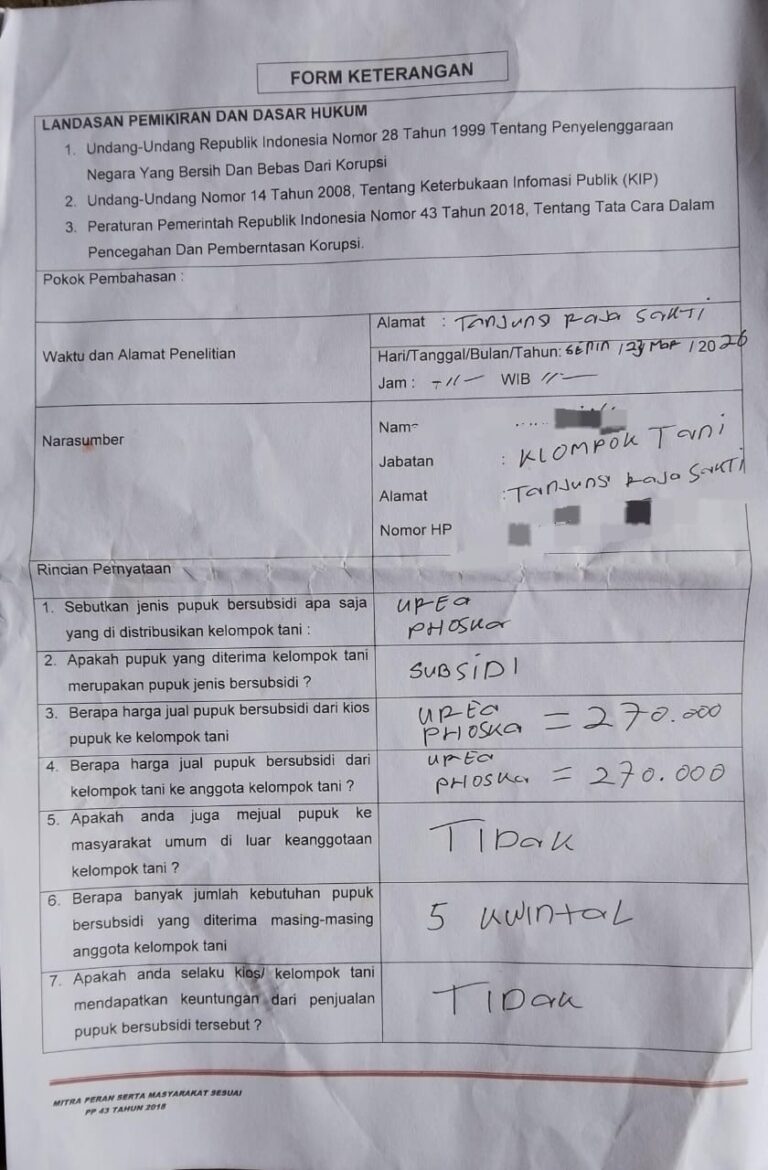 FORM KETERANGAN
LANDASAN PEMIKIRAN DAN DASAR HUKUM
1. Undang-Undang Republik Indonesia Nomor 28 Tahun 1999 Tentang Penyelenggaraan
Negara Yang Bersih Dan Bebas Dari Korupsi
2. Undang-Undang Nomor 14 Tahun 2008, Tentang Keterbukaan Infomasi Publik (KIP)
3. Peraturan Pemerintah Republik Indonesia Nomor 43 Tahun 2018, Tentang Tata Cara Dalam
Pencegahan Dan Pemberntasan Korupsi.
Pokok Pembahasan :
Waktu dan Alamat Penelitian
Alamat : Tanjung Raja Sakti
Hari/Tanggal/Bulan/Tahun: SENIN / 23 Mar / 2026
Jam : WIB
Narasumber
Nam
Jabatan : KLOMPOK Tani
Alamat : Tanjung Raja Sakti
Nomor HP
Rincian Pernyataan
1. Sebutkan jenis pupuk bersubsidi apa saja
yang di distribusikan kelompok tani :
UREA
PHOSKA
2. Apakah pupuk yang diterima kelompok tani
merupakan pupuk jenis bersubsidi ?
SUBSIDI
3. Berapa harga jual pupuk bersubsidi dari kios
pupuk ke kelompok tani
UREA
PHOSKA = 270.000
4. Berapa harga jual pupuk bersubsidi dari
kelompok tani ke anggota kelompok tani ?
UREA
PHOSKA = 270.000
5. Apakah anda juga mejual pupuk ke
masyarakat umum di luar keanggotaan
kelompok tani ?
TIDAK
6. Berapa banyak jumlah kebutuhan pupuk
bersubsidi yang diterima masing-masing
anggota kelompok tani
5 KWINTAL
7. Apakah anda selaku kios/ kelompok tani
mendapatkan keuntungan dari penjualan
pupuk bersubsidi tersebut ?
TIDAK
MITRA PERAN SERTA MASYARAKAT SESUAI
PP 43 TAHUN 2018